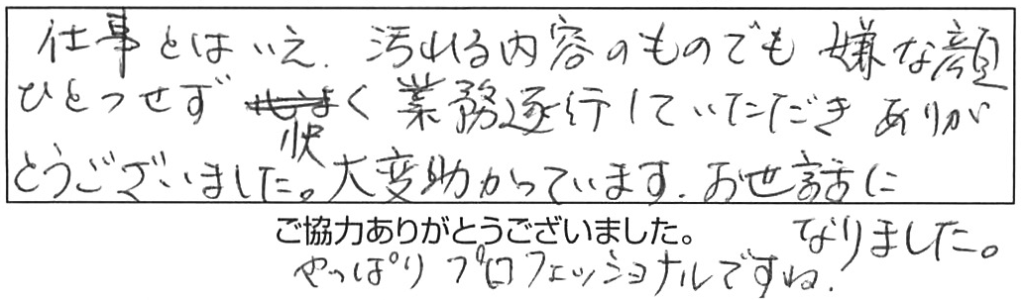 仕事とはいえ、汚れる内容のものでも嫌な顔
ひとつせず快く業務遂行していただきありが
とうございました。大変助かっています。お世話に
なりました。
ご協力ありがとうございました。
やっぱりプロフェッショナルですね。